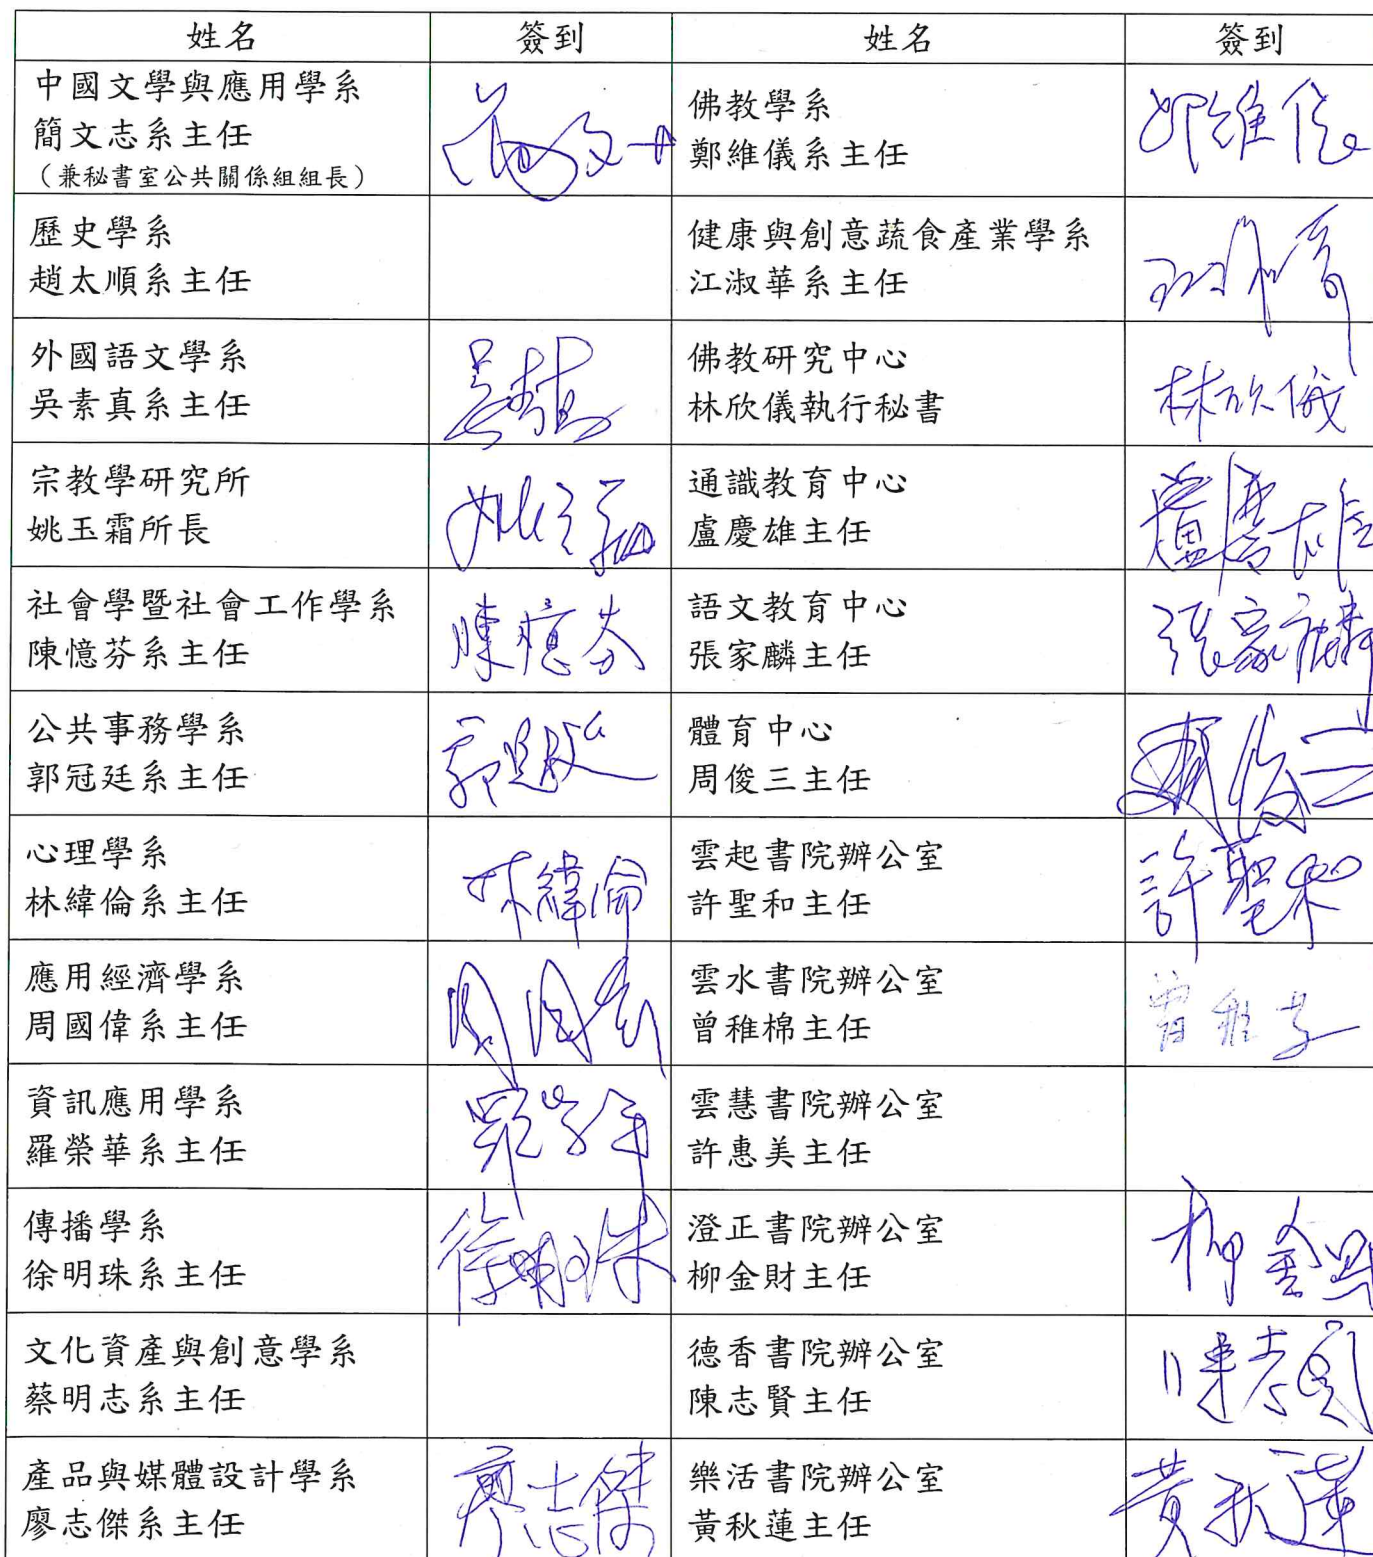 姓名 簽到 姓名 簽到
中國文學與應用學系
簡文志系主任
（兼秘書室公共關係組組長）
佛教學系
鄭維儀系主任
歷史學系
趙太順系主任
健康與創意蔬食產業學系
江淑華系主任
外國語文學系
吳素真系主任
佛教研究中心
林欣儀執行秘書
林欣儀
宗教學研究所
姚玉霜所長
通識教育中心
盧慶雄主任
盧慶雄
社會學暨社會工作學系
陳憶芬系主任
陳憶芬
語文教育中心
張家麟主任
張家麟
公共事務學系
郭冠廷系主任
體育中心
周俊三主任
心理學系
林緯倫系主任
林緯倫
雲起書院辦公室
許聖和主任
許聖和
應用經濟學系
周國偉系主任
雲水書院辦公室
曾稚棉主任
資訊應用學系
羅榮華系主任
雲慧書院辦公室
許惠美主任
傳播學系
徐明珠系主任
徐明珠
澄正書院辦公室
柳金財主任
文化資產與創意學系
蔡明志系主任
德香書院辦公室
陳志賢主任
產品與媒體設計學系
廖志傑系主任
廖志傑
樂活書院辦公室
黃秋蓮主任
黃秋蓮